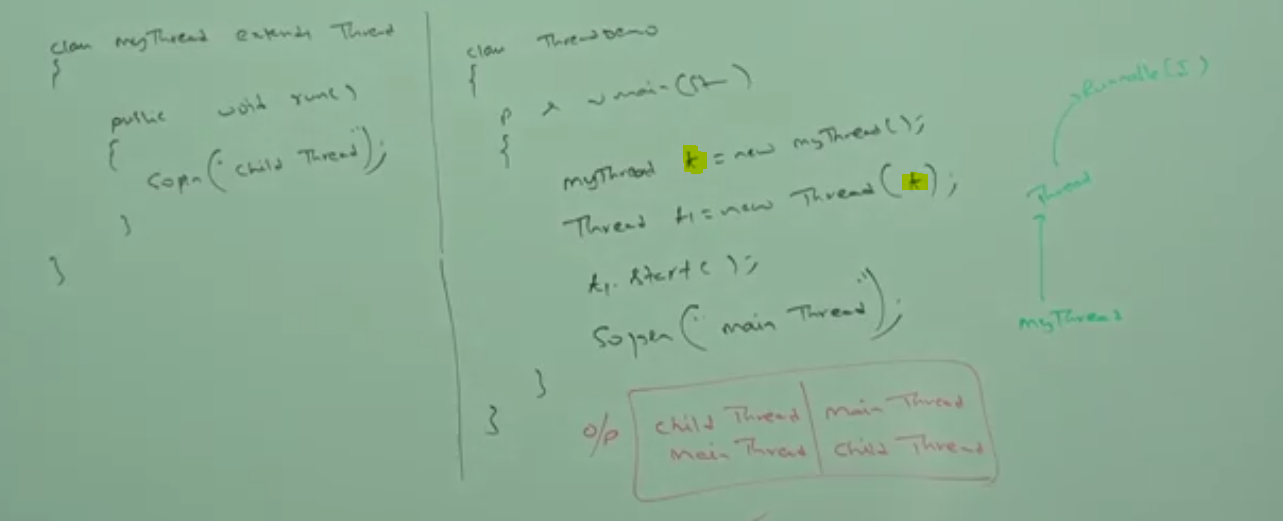 class MyThread extends Thread
{
public void run()
{
Sopn("child Thread");
}
}
class ThreadDemo
{
p s v main(S[]—)
{
MyThread t = new MyThread();
Thread t1 = new Thread(t);
t1.start();
Sopln("main Thread");
}
}
o/p
child Thread | main Thread
main Thread | child Thread
Runnable(I)
Thread
MyThread